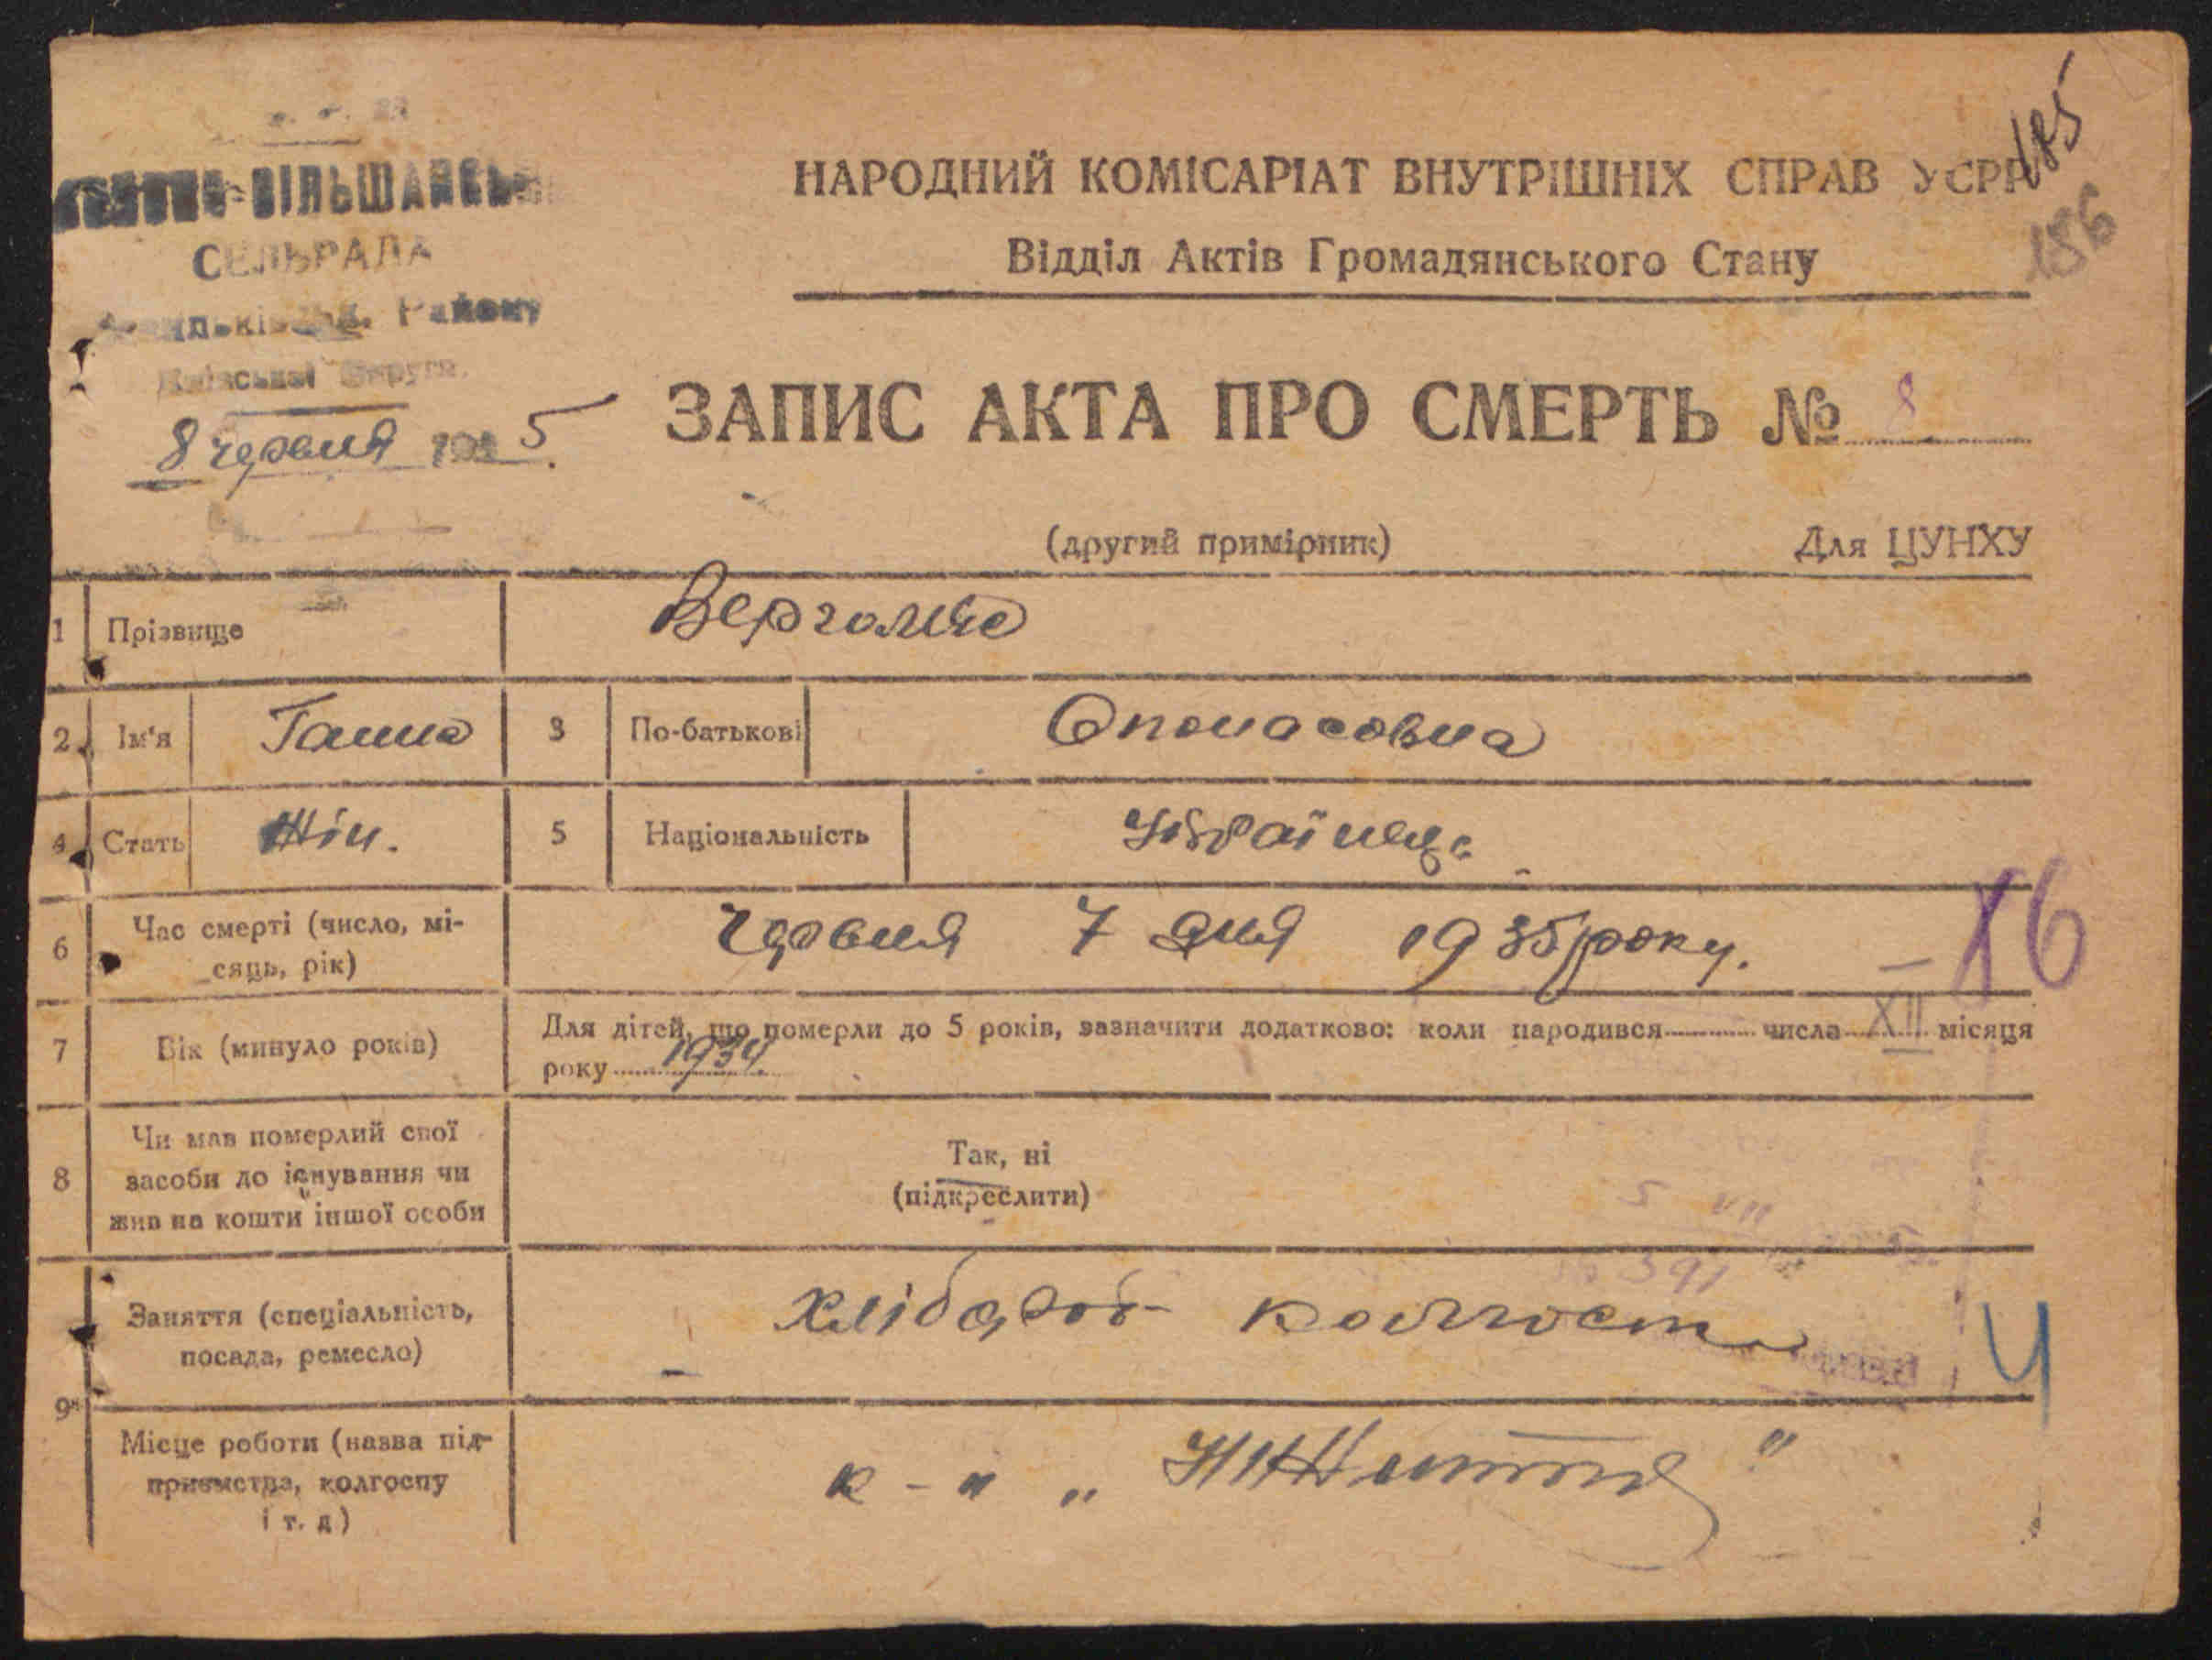 ВІЛЬШАНСЬК
СЕЛЬРАДА
Району
8 червня 193 5
185
186
НАРОДНИЙ КОМІСАРІАТ ВНУТРІШНІХ СПРАВ УСРР
Відділ Актів Громадянського Стану
ЗАПИС АКТА ПРО СМЕРТЬ № 8
(другий примірник) Для ЦУНХУ
1 Прізвище
2 Ім'я Ганна 3 По-батькові Опонасовна
4 Стать Жін. 5 Національність Українц.
6 Час смерті (число, мі-
сяць, рік) Червня 7 дня 1935 року.
X6
7 Вік (минуло років) Для дітей, що померли до 5 років, зазначити додатково: коли народився числа XII місяця
року 1934.
8 Чи мав померлий свої
засоби до існування чи
жив на кошти іншої особи
Так, ні
(підкреслити)
5 VII
391
9 Заняття (спеціальність,
посада, ремесло) Хлібороб колгосп
Ч
Місце роботи (назва під-
приємства, колгоспу
і т. д)
к-п „ Життя "